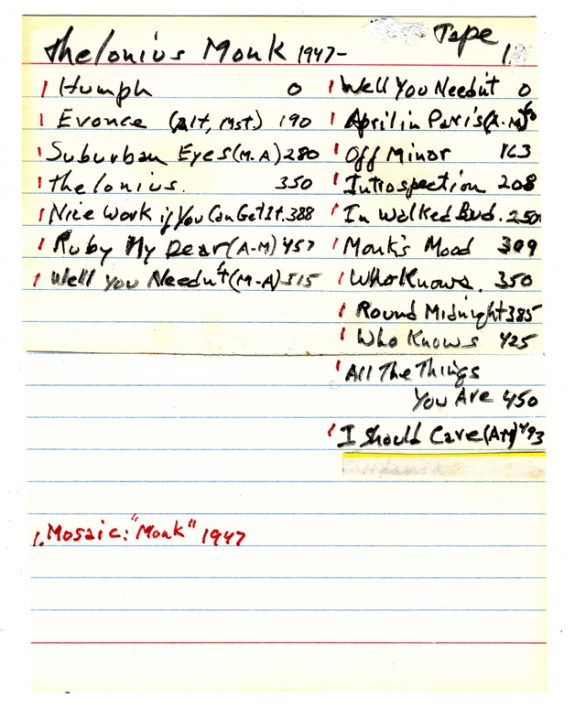 Thelonius Monk 1947-
Tape 1.
1 Humph 0
1 Evonce (Alt, Mst) 190
1 Suburban Eyes (M.A) 280
1 Thelonius. 350
1 Nice Work if You Can Get It. 388
1 Ruby My Dear (A-M) 457
1 Well You Needn't (M-A) 515
1 Well You Needn't 0
1 April in Paris (A-M)
1 Off Minor 163
1 Introspection 208
1 In Walked Bud. 250
1 Monk's Mood 309
1 Who Knows. 350
1 Round Midnight 385
1 Who Knows 425
1 All The Things
You Are 450
1 I Should Care (AM) 493
1. Mosaic: "Monk" 1947